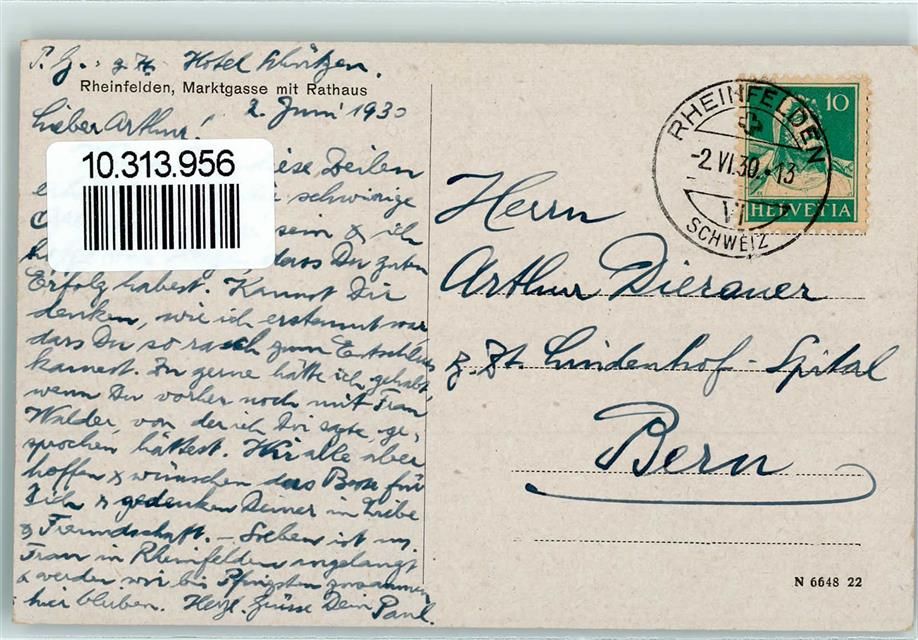 Hotel Schützen.
Rheinfelden, Marktgasse mit Rathaus
2. Juni 1930
Lieber Arthur!
10.313.956
diese Zeilen
schwierige
sein & ich
dass Du guten
Erfolg habest. Kannst Dir
denken, wie ich erstaunt war
dass Du so rasch zum Entschluss
kamest. Zu gerne hätte ich gehabt,
wenn Du vorher noch mit Frau
Walder, von der ich Dir sagte, ge-
sprochen hättest. Wir alle aber
hoffen & wünschen das Beste für
Dich & gedenken Deiner in Liebe
& Freundschaft. – Soeben ist m.
Frau in Rheinfelden angelangt
& werden wir bis Pfingsten zusammen
hier bleiben. Herzl. Grüsse Dein Paul.
RHEINFELDEN
-2.VI.30.-13
VI
SCHWEIZ
10
HELVETIA
Herrn
Arthur Dierauer
z. Zt. Lindenhof-Spital
Bern
N 6648 22